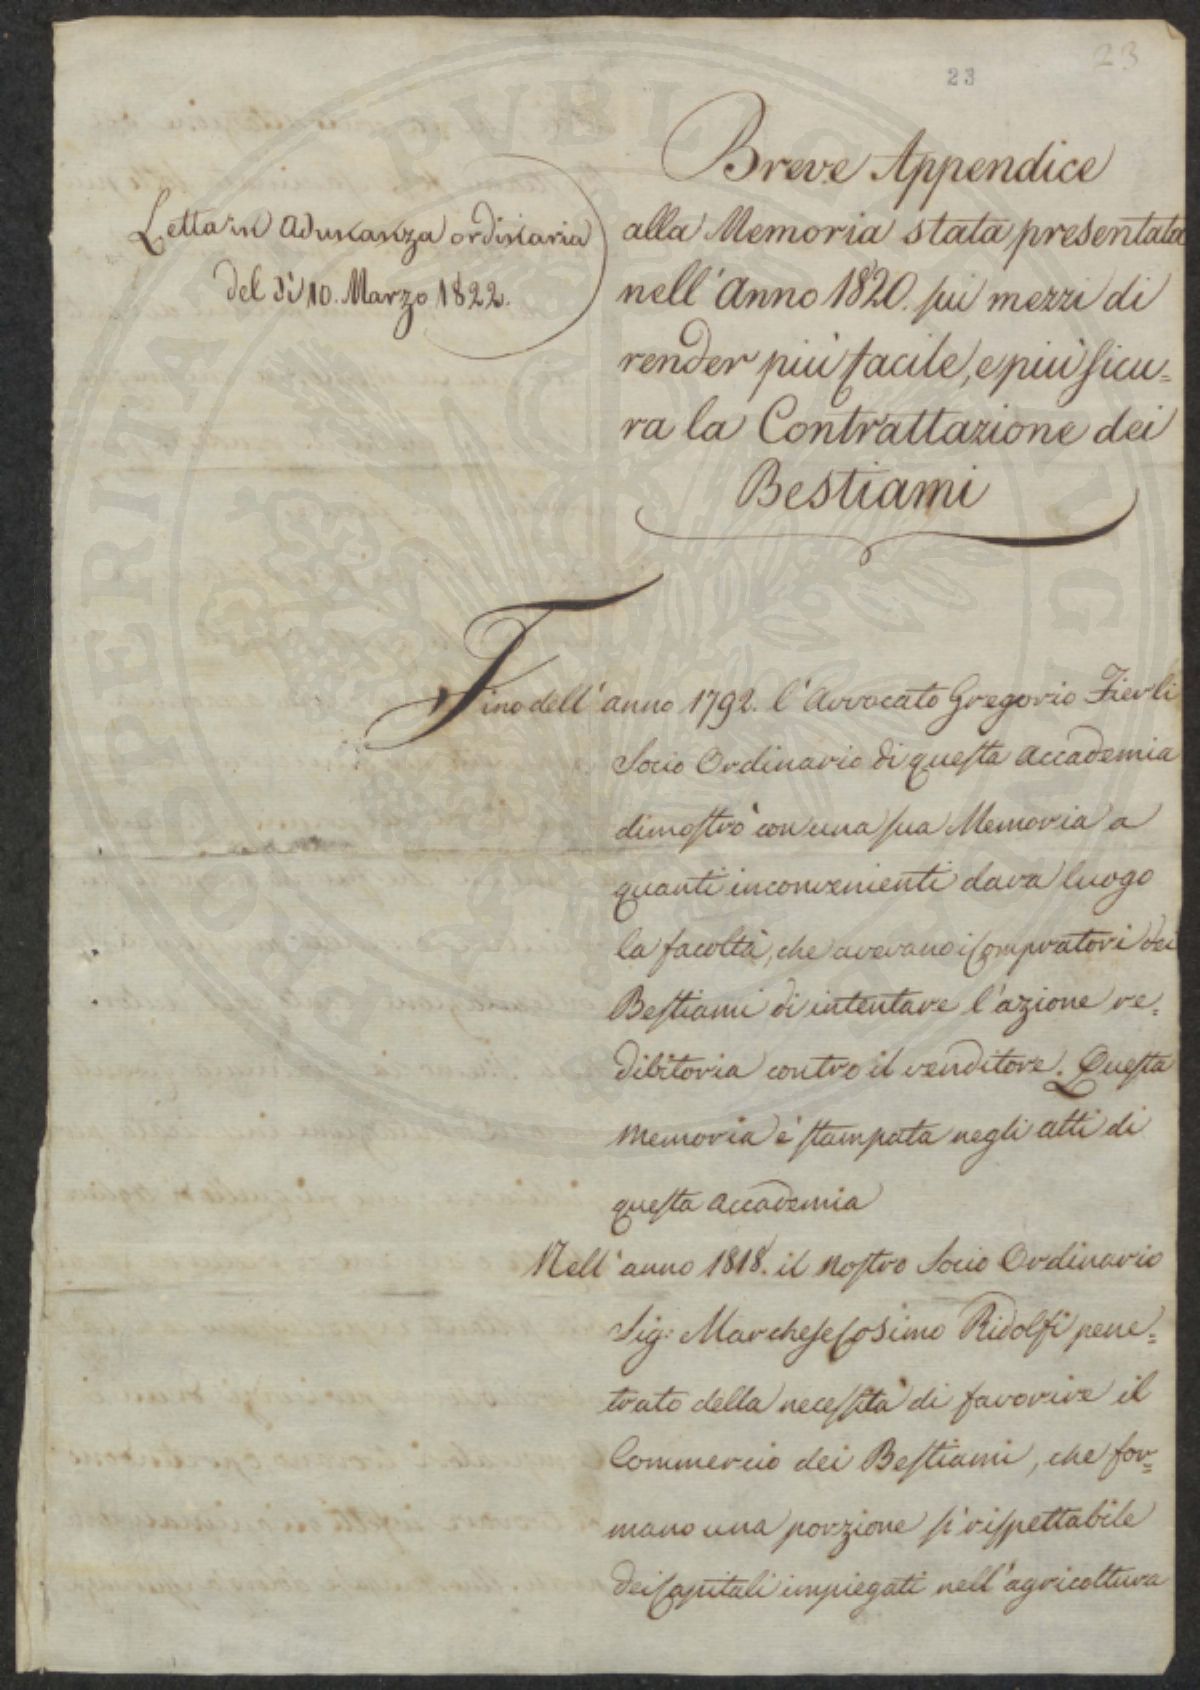 23
23
Breve Appendice
alla Memoria stata presentata
nell'Anno 1820. sui mezzi di
render più facile, e più sicu=
ra la Contrattazione dei
Bestiami
Letta in Adunanza ordinaria
del dì 10. Marzo 1822.
Fino dell'anno 1792. l'Avvocato Gregorio Fierli
Socio Ordinario di questa Accademia
dimostrò con una sua Memoria a
quanti inconvenienti dava luogo
la facoltà, che avevano i Compratori dei
Bestiami di intentare l'azione re=
dibitoria contro il venditore. Questa
memoria è stampata negli atti di
questa Accademia
Nell'anno 1818. il nostro Socio Ordinario
Sig: Marchese Cosimo Ridolfi pene=
trato della necessità di favorire il
Commercio dei Bestiami, che for=
mano una porzione sì rispettabile
dei Capitali impiegati nell'agricoltura